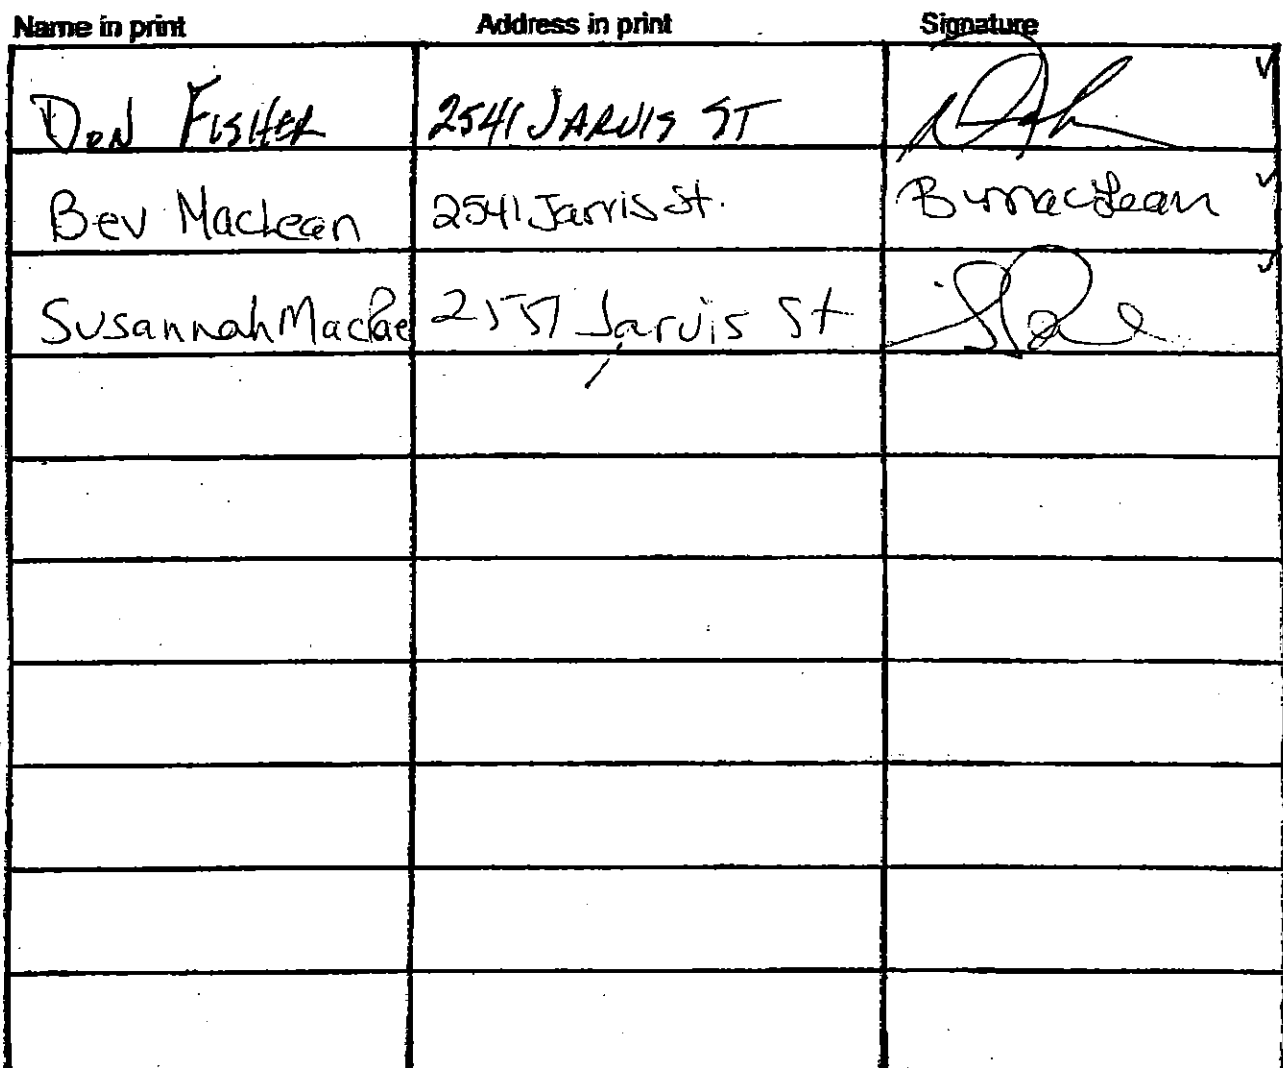 Name in print Address in print Signature
Don Fisher 2541 Jarvis St
Bev MacLean 2541 Jarvis St. B MacLean
Susannah MacRae 2557 Jarvis St